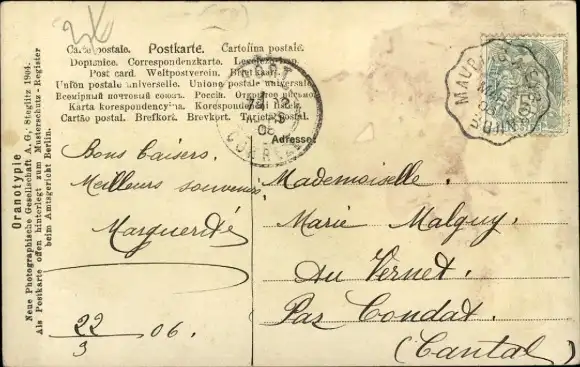 Carte postale. Postkarte. Cartolina postale.
Dopisnice. Correspondenzkarte. Levelező-lap.
Post card. Weltpostverein. Brefkaart.
Union postale universelle. Unione postale universale.
Всемірный почтовый союзъ. Россія. Открытое письмо.
Karta korespondencyjna. Korespondenční lístek.
Cartão postal. Brefkort. Brevkort. Tarjeta Postal.
Adresse
Oranotypie
Neue Photographische Gesellschaft A. G., Steglitz 1904.
Als Postkarte offen hinterlegt zum Musterschutz-Register
beim Amtsgericht Berlin.
CONDAT
CORRÈZE
06
Bons baisers.
Meilleurs souvenirs
Marguerite
22/3 06.
Mademoiselle.
Marie Malguy.
Au Vernet.
Par Condat.
(Cantal)